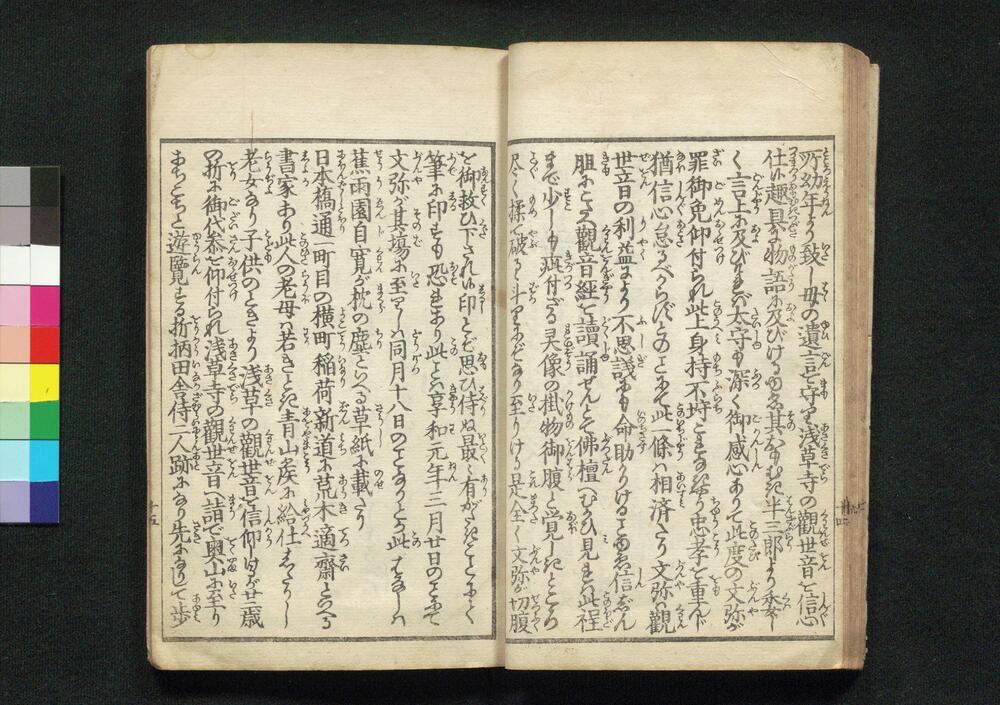 所幼年より致し母の遺言を守り浅草寺の觀世音を信心
仕候趣具に物語に及びける 其 半三郎より委し
く言上に及びければ太守も深く御感心ありて此度の文弥が
罪御免仰付られ此上身持不埒 忠孝を重んじ
猶信心怠るべからずとのことにて此一條は相済たり文弥は觀
世音の利益により不思議にも命助りける 信ぜん
肝にこたへ觀音經を讀誦せんとて佛檀へむかひ見れば此程
まで少しも疵付ざる灵像の掛物御腹と覚しき
尽く揉て破るゝ斗りにぞなり至りける是全く文弥が切腹
を御救ひ下されし印とぞ思ひ侍ぬ最も有がたきことにて
筆に印すも恐れあり此ことは享和元年三月廿日のことにて
文弥が其場に至りしは同月十八日のことなりとぞ此はなしは
蕉雨園自寛が枕の塵といへる草紙に載たり
日本橋通一町目の横町稲荷新道に荒木適齋といへる
書家あり此人の老母は若きとき青山矦に給仕したりし
老女なり子供のときより浅草の觀世音を信仰しけるが 歳
の折に御代参を仰付られ浅草寺の觀世音へ詣で奥山に至り
あちこちと遊覽する折柄田舎侍二人跡になり先になりして歩